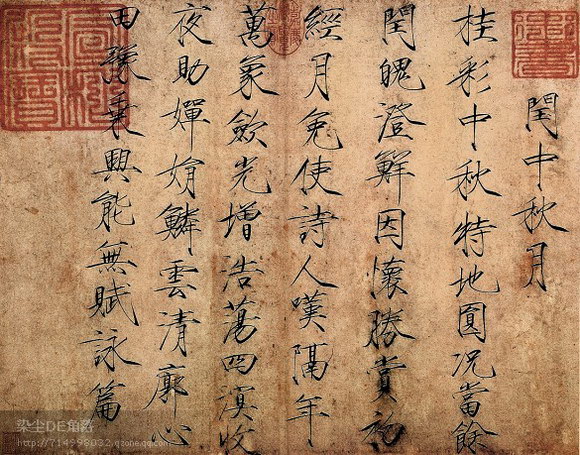 閏中秋月
桂彩中秋特地圓况當餘
閏魄澄鮮因懷勝賞初
經月免使詩人嘆隔年
萬象歛光增浩蕩四溟收
夜助嬋娟鱗雲清廓心
田豫乘興能無賦詠篇
染尘DE角落
http://714998032.qzone.qq.com